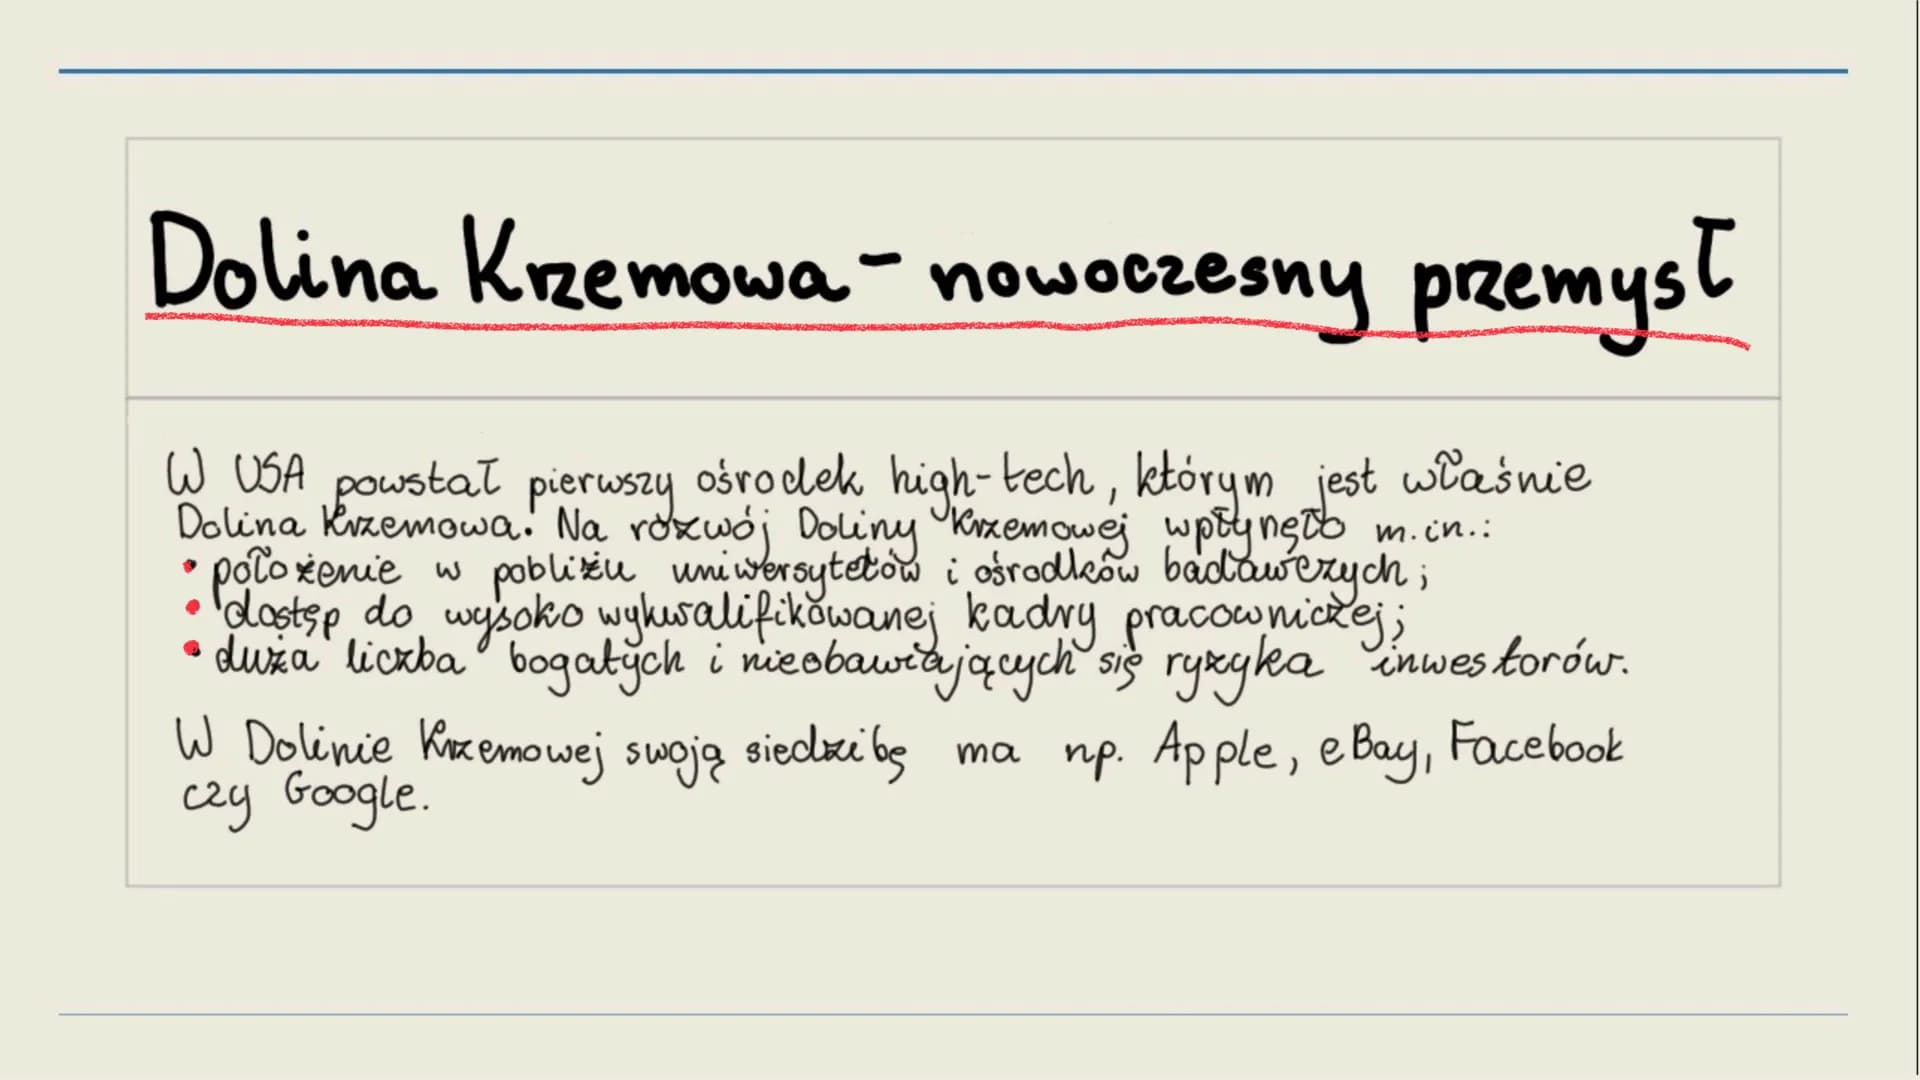 Dolina Krzemowa - nowoczesny przemysł
W USA powstał pierwszy ośrodek high-tech, którym jest właśnie
Dolina Krzemowa. Na rozwój Doliny Krzemowej wpłynęło m.in.:
• położenie w pobliżu uniwersytetów i ośrodków badawczych;
• dostęp do wysoko wykwalifikowanej kadry pracowniczej;
• duża liczba bogatych i nieobawiających się ryzyka inwestorów.
W Dolinie Krzemowej swoją siedzibę ma np. Apple, eBay, Facebook
czy Google.